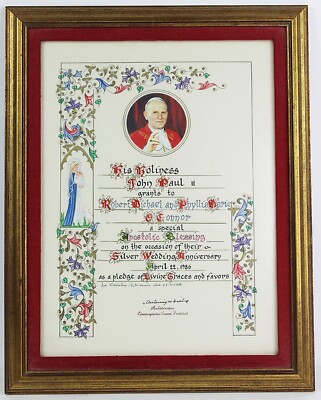 His Holiness
John Paul II
grants to
Robert Michael and Phyllis Marie
O'Connor
a special
Apostolic Blessing
on the occasion of their
Silver Wedding Anniversary
April 22, 1986
as a pledge of Divine Graces and favors